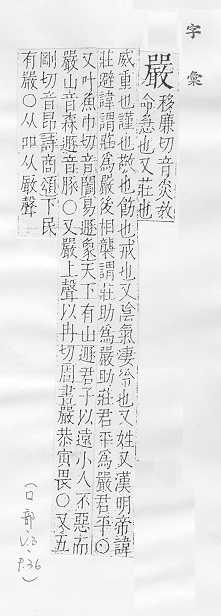 字彙
嚴
移廉切音炎敎
命急也又莊也
威重也謹也敬也飭也戒也又陰氣凄冷也又姓又漢明帝諱
莊避諱謂莊爲嚴後相襲謂莊助爲嚴助莊君平爲嚴君平○
又叶魚巾切音誾易遯象天下有山遯君子以遠小人不惡而
嚴山音森遯音豚○又嚴上聲以冉切周書嚴恭寅畏○又五
剛切音昂詩商頌下民
有嚴○从吅从厰聲
(口部 V.3. P.36)